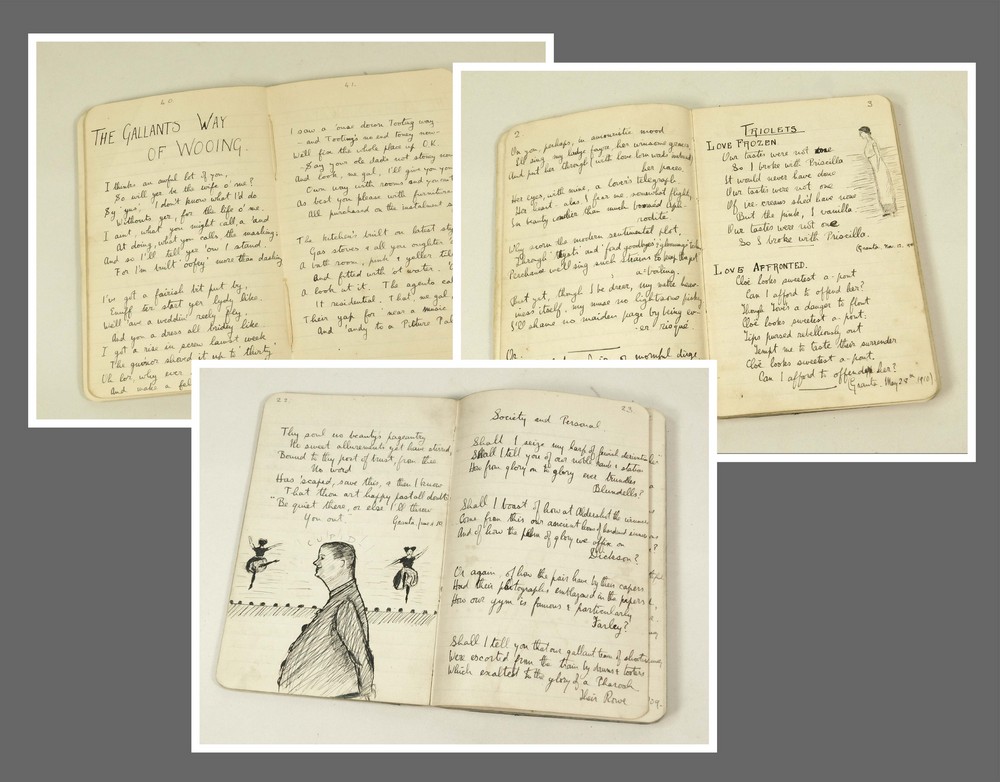 40.
THE GALLANTS WAY
OF WOOING.
I thinks an awful lot of you,
So will yer be the wife o' me?
Say 'yus', I don't know what I'd do
Withouts yer, for the life o' me.
I aint, what you might call, a 'and
At doing, what you calls the mashing,
And so I'll tell yer 'ow I stand.
For I'm built 'oofey' more than dashing
I've got a fairish bit put by,
Enuff ter start yer lydy like.
We'll 'ave a weddin' reely fly,
And you a dress all bridey like.
I got a rise in screw larst week
The guvnor shoved it up to 'thirty'
Oh lor, why ever
And make a
41.
I saw a 'ouse down Tooting way
- and Tooting's me and toney now -
We'll fix the whole place up O.K.
Say your ole dads not stoney now
And look, me gal, I'll give you
Our way with rooms and you
As best you please with furniture
All purchased on the instalment
The kitchen's built on latest
Gas stoves & all you oughter
A bath room, pink & yaller
And fitted with 'ot warter.
A look at it. The agents
It residential. That, me gal,
Their yap for 'near a music
And 'andy to a Picture
2
Or you, perhaps, in amoristic mood
I'll sing, my
And put her through with
her paces.
Her eyes, with mine, a lover's telegraph
Her heart, alas, I fear me somewhat flighty,
In beauty
rodite
Why scorn the modern sentimental plot,
Through 'Nyati' and 'fond goodbyes'
Perchance we'll sing such strains to keep the pot
a-boiling.
That yet, though I be dreer, my métre
ness itself, my muse no lightsome
I'll shame no maiden page by being
er risqué.
Or
of mournful dirge
3
TRIOLETS
LOVE FROZEN
Our tastes were not
So I broke with Priscilla
It would never have done
Our tastes were not one
Of ice-creams she'd have some
But the pink, I vanilla
Our tastes were not one
So I broke with Priscilla.
LOVE AFFRONTED.
Cloë looks sweetest a-pout
Can I afford to offend her?
Though 'twere a danger to flout
Cloë looks sweetest a-pout.
Lips pursed rebelliously out
Tempt me to taste their surrender
Cloë looks sweetest a-pout.
Can I afford to offend her?
(Granta. May 28th 1910)
22.
Thy soul no beauty's pageantry
Nor sweet allurements yet have stirred,
Bound to thy post of trust, from thee
No word
Has 'scaped, save this, & then I know
That thou art happy past all doubt
"Be quiet there, or else I'll throw
You out."
Granta, June
CUPID
23.
Society and Personal
Shall I seize my harp of
Shall I tell you of our noble
How from glory on to glory ever trundles
Blundells?
Shall I boast of how at Aldershot the
Come from this our ancient
And of how the plum of glory we affix on
Dickson?
Or again of how the pair have by their capers
Had their photographs emblazoned in the papers
How our gym is famous & particularly
Farley?
Shall I tell you that our gallant team of
Were escorted from the train by drums & tooters
Which exalted to the glory of a Pharoah
Their Rowe